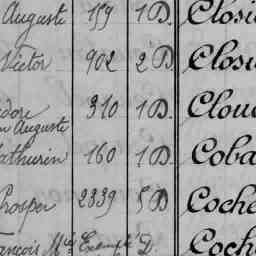 Auguste 159 1D. Closi
Victor 902 2D Closi
dore 310 1D. Clou
n Auguste
athurin 160 1D. Coba
Prosper 2339 5D Coche
ançois Mie Exempté D. Coch